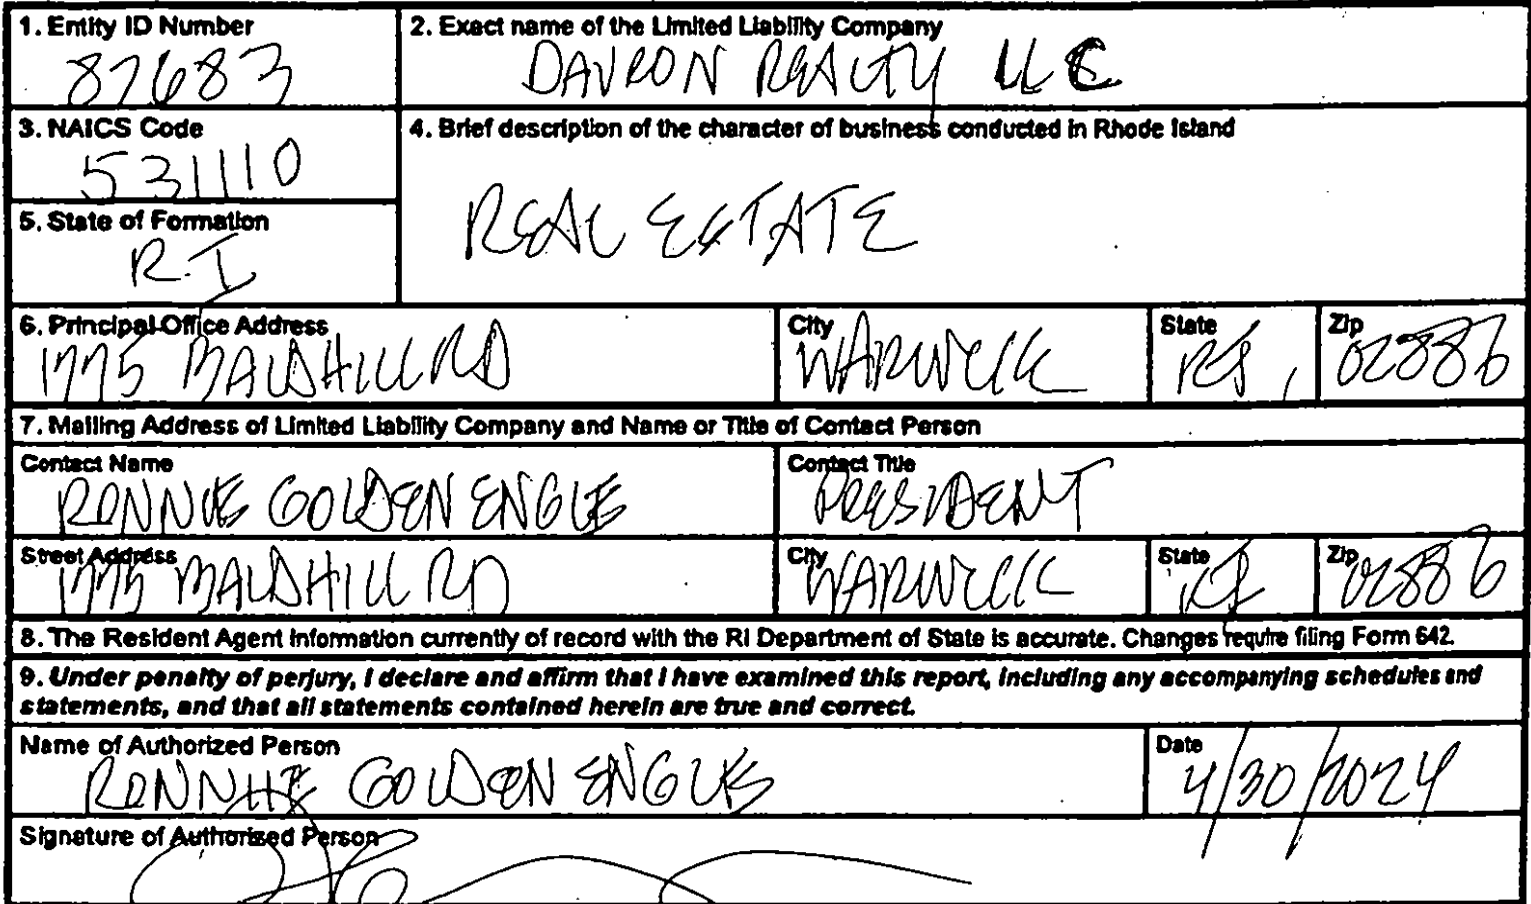 1. Entity ID Number
87683
2. Exact name of the Limited Liability Company
DAVRON REALTY LLC
3. NAICS Code
531110
4. Brief description of the character of business conducted in Rhode Island
REAL ESTATE
5. State of Formation
RI
6. Principal Office Address
1775 BALDHILL RD
City
WARWICK
State
RI,
Zip
02886
7. Mailing Address of Limited Liability Company and Name or Title of Contact Person
Contact Name
RONNIE GOLDEN ENGLE
Contact Title
PRESIDENT
Street Address
1775 BALDHILL RD
City
WARWICK
State
RI
Zip
02886
8. The Resident Agent information currently of record with the RI Department of State is accurate. Changes require filing Form 642.
9. Under penalty of perjury, I declare and affirm that I have examined this report, including any accompanying schedules and
statements, and that all statements contained herein are true and correct.
Name of Authorized Person
RONNIE GOLDEN ENGLE
Date
4/30/2024
Signature of Authorized Person